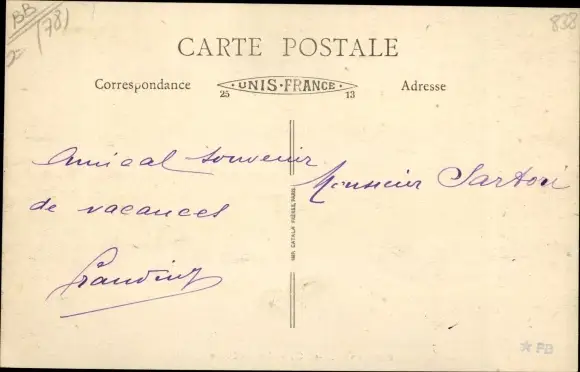 BB
(78)
838
CARTE POSTALE
Correspondance
UNIS·FRANCE
25 13
Adresse
Amical souvenir
de vacances
Monsieur Sartori
IMP. CATALA FRÈRES, PARIS
PB